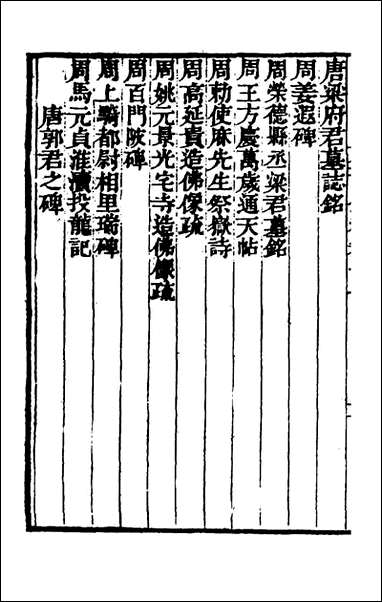 唐梁府君墓誌銘
周姜遐碑
周榮德縣丞梁君墓銘
周王方慶萬歲通天帖
周勅使麻先生祭嶽詩
周高延貴造佛像疏
周姚元景光宅寺造佛像疏
周百門陂碑
周上騎都尉相里瑞碑
周馬元貞淮瀆投龍記
唐郭君之碑